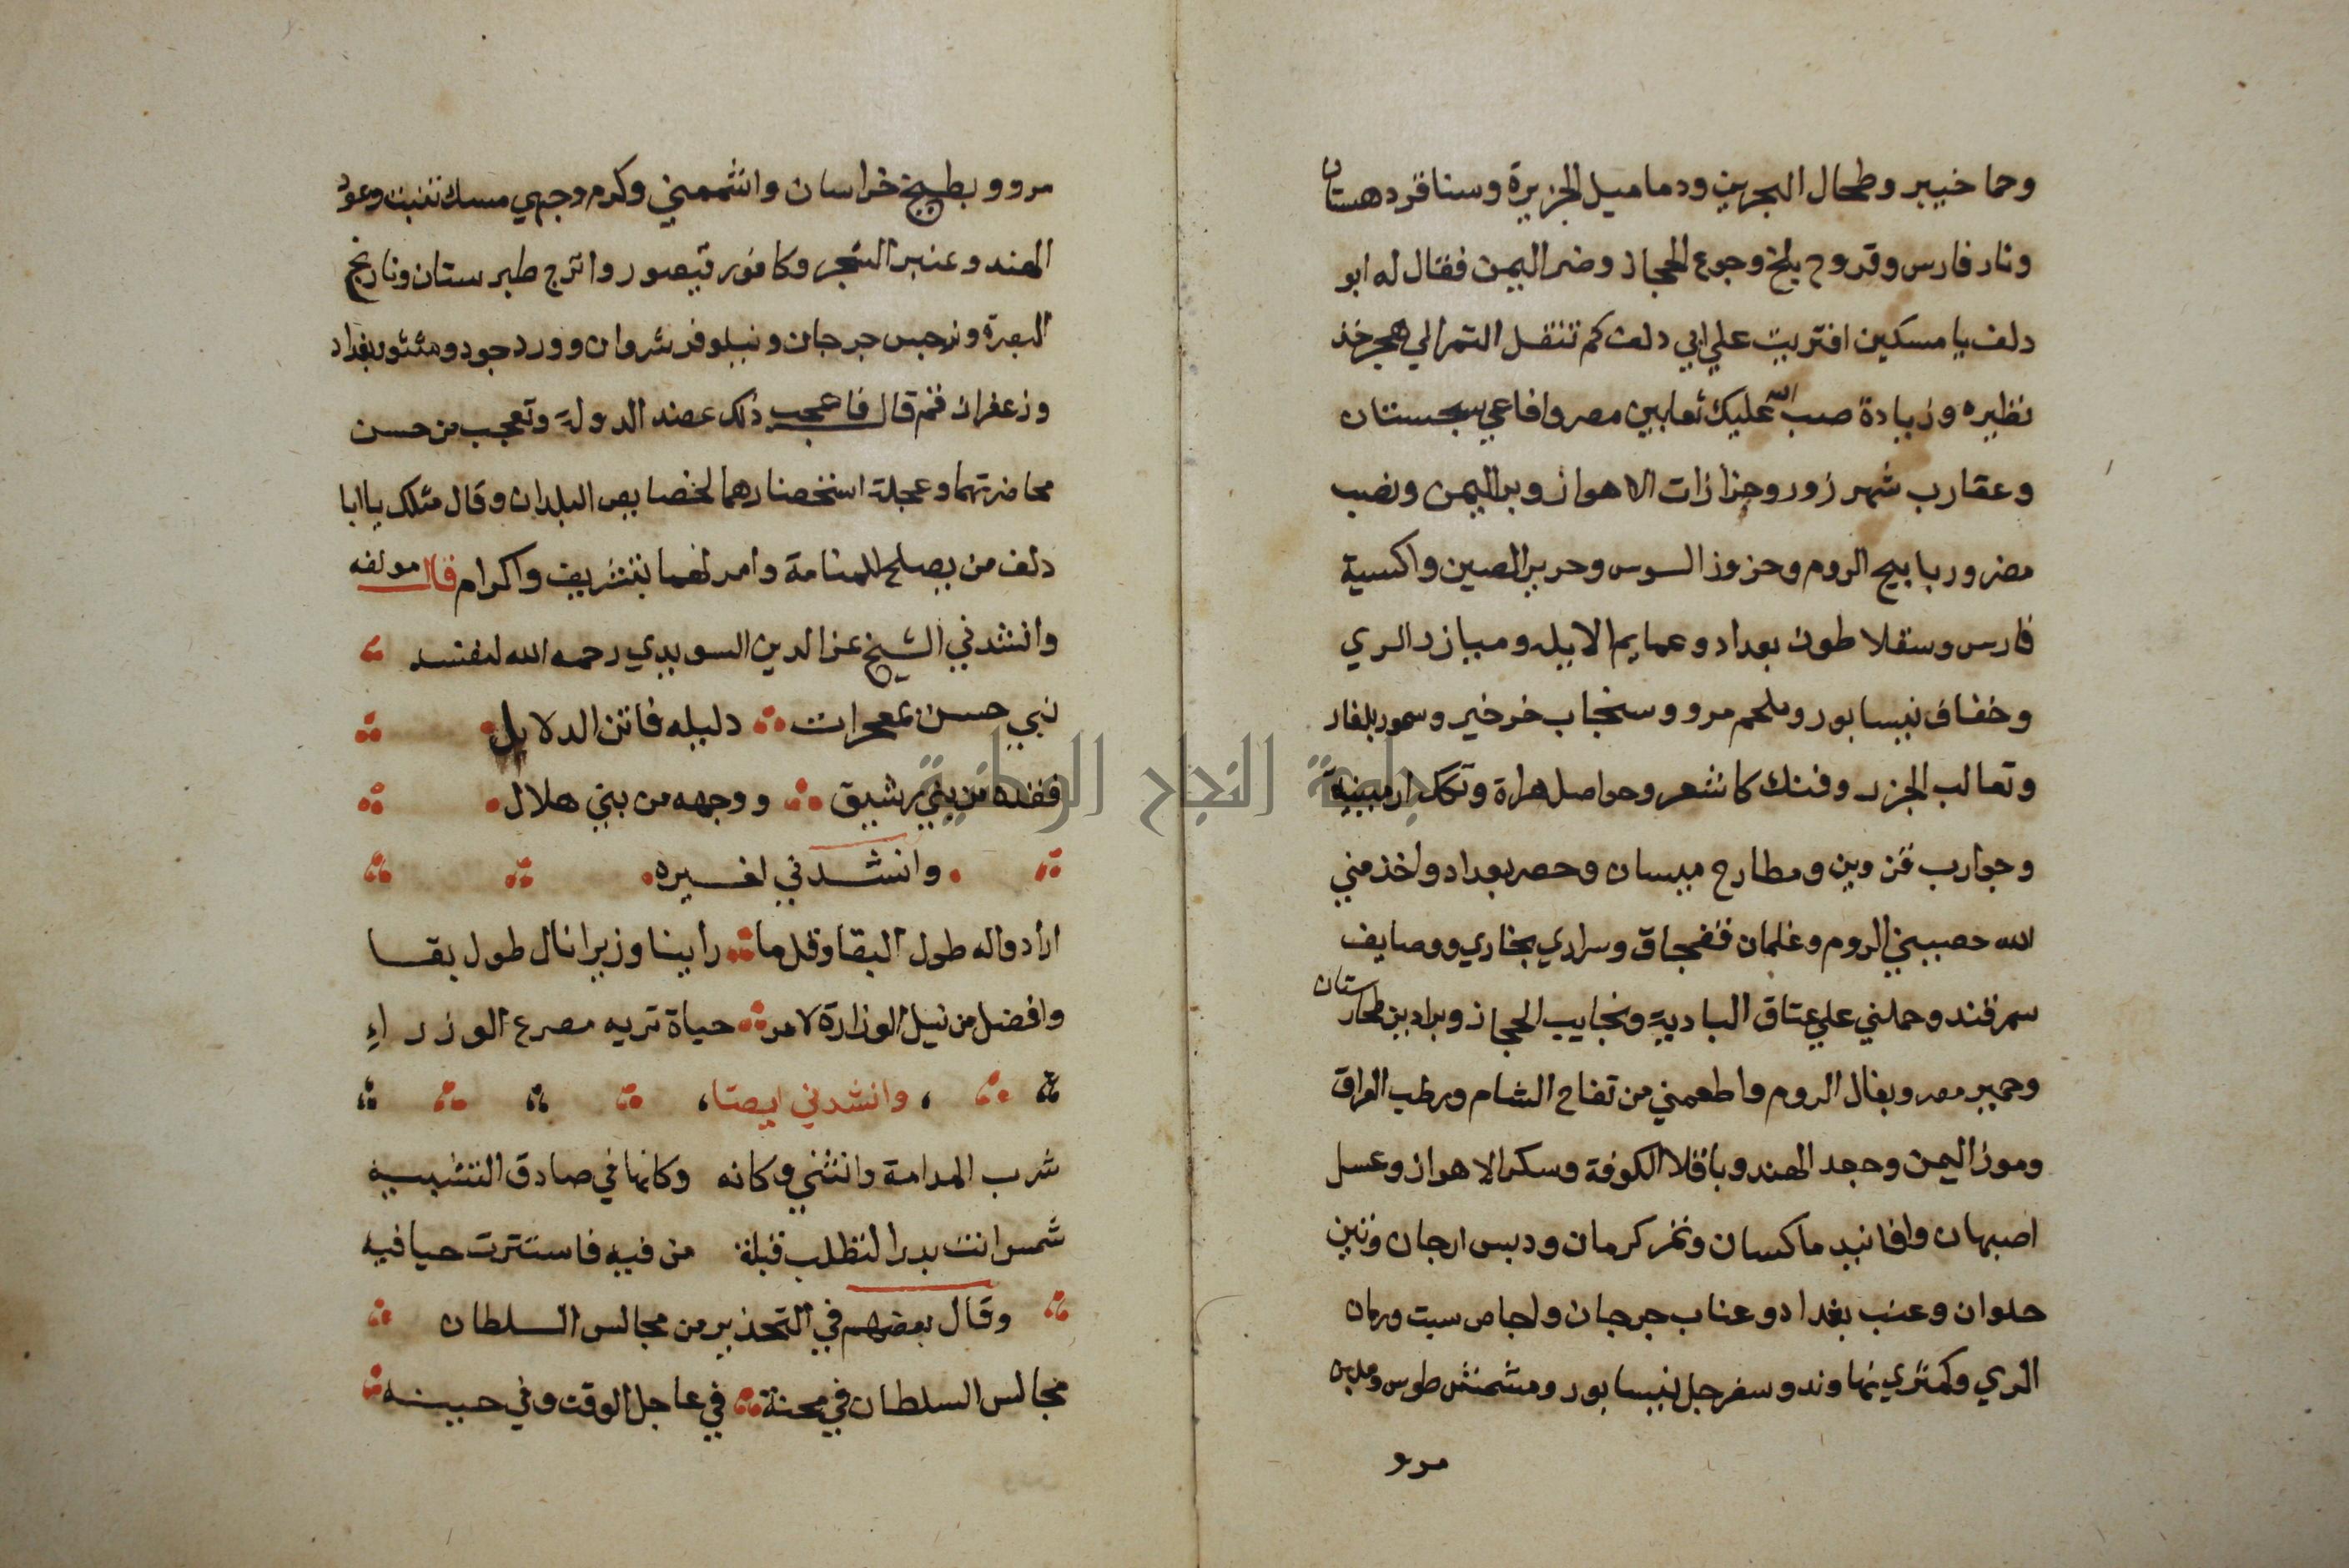 وحما خيبر وطحال البحرين ودماميل الجزيرة وسناقر دهستان
ونار فارس وقروح بلخ وجوع الحجاز وضر اليمن فقال له ابو
دلف يا مسكين افتريت علي ابي دلف كم تنقل التمر الي هجر خذ
نظيره وزيادة صب الله عليك ثعابين مصر وافاعي سجستان
وعقارب شهرزور وجزازات الاهواز وبر اليمن ونصب
مضر وربابيح الروم وحزوز السوس وحرير الصين واكسية
فارس وسقلاطون بعداد وعمايم الابله ومبازر الري
وخفاف نيسابور وملحم مرو وسنجاب خرخير وسمور بلغار
وثعالب الجزر وفنك كاشعر وحواصل هراة وتكك ارمينية
وجوارب قزوين ومطارح ميسان وحصر بعداد واخذ مني
الله حصيبني الروم وغلمان قفجاق وسراري بخاري ووصايف
سمرقند وحملني علي عتاق البادية ونجايب الحجاز وبرادين طخارستان
وحمير مصر وبغال الروم واطعمني من تفاح الشام ورطب العراق
وموز اليمن وحجد الهند وباقلا الكوفة وسكر الاهواز وعسل
اصبهان وافانيد ماكسان وتمر كرمان ودبس ارجان وتين
حلوان وعنب بغداد وعناب جرجان واجاص سبت ورمان
الري وكمثري نهاوند وسفرجل نيسابور ومشمش طوس وملبن
مرو
مرو وبطيخ خراسان واشممني وكرم وجهي مسك تنبت وعود
الهند وعنبر الشجر وكافور قيصور واترج طبرستان ونارنج
البصرة ونرجس جرجان ونيلوفر شروان وورد جود ومنثور بغداد
وزعفران قم قال فاعجب ذلك عضد الدولة وتعجب من حسن
محاضرتهما وعجلة استخصنارهما لخصايص البلدان وقال مثلك يا ابا
دلف من يصلح للمنامة وامر لهما بتشريف واكرام قال مولفه
وانشدني الشيخ عز الدين السويدي رحمه الله لنفسه
نبي حسن بمعجزات دليله فاتن الدلايل
فقده من بني رشيق ووجهه من بني هلال
وانشدني لغيره
ارادوا له طول البقا وقل ما راينا وزيرا نال طول بقا
وافضل من نيل الوزارة لامر حياة تريه مصرع الوزراء
وانشدني ايضا
شرب المدامة وانثني وكانه وكانها في صادق التشبيه
شمس اتت بدرا لتطلب قبلة من فيه فاستترت حيا فيه
وقال بعضهم في التحذير من مجالس السلطان
مجالس السلطان في محنة في عاجل الوقت وفي حينه
جامعة النجاح الوطنية